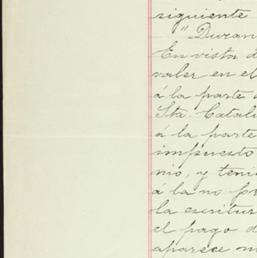 siguiente
"Duran
En vista d
valer en el
á la parte d
Sta. Catali
á la parte
impuesto
nio, y teni
á la no pr
la escritur
el pago d
aparece m